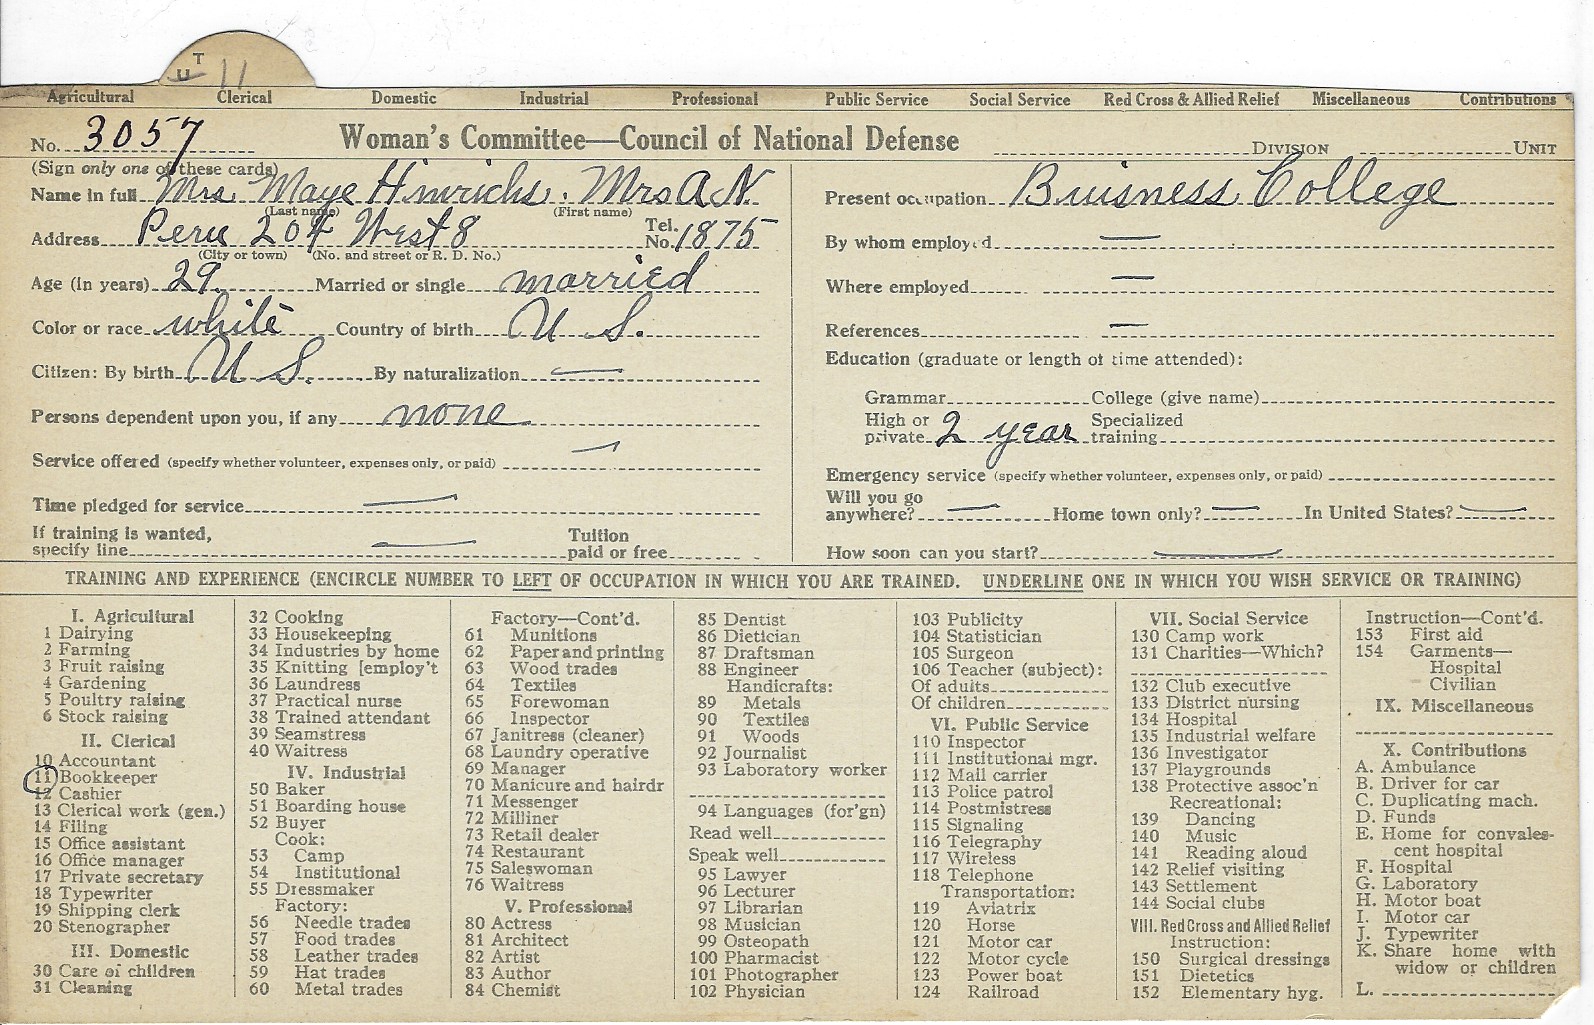 T
U 11
Agricultural Clerical Domestic Industrial Professional Public Service Social Service Red Cross & Allied Relief Miscellaneous Contributions
No. 3057 Woman's Committee—Council of National Defense DIVISION UNIT
(Sign only one of these cards)
Name in full Mrs. Maye Hinrichs. Mrs A. N.
(Last name) (First name)
Address Peru 204 West 8 Tel. No. 1875
(City or town) (No. and street or R. D. No.)
Age (in years) 29. Married or single married
Color or race white Country of birth U S.
Citizen: By birth U S. By naturalization —
Persons dependent upon you, if any none
Service offered (specify whether volunteer, expenses only, or paid) —
Time pledged for service —
If training is wanted,
specify line — Tuition paid or free
Present occupation Buisness College
By whom employed —
Where employed —
References —
Education (graduate or length of time attended):
Grammar College (give name)
High or private 2 year Specialized training
Emergency service (specify whether volunteer, expenses only, or paid)
Will you go
anywhere? — Home town only? — In United States? —
How soon can you start? —
TRAINING AND EXPERIENCE (ENCIRCLE NUMBER TO LEFT OF OCCUPATION IN WHICH YOU ARE TRAINED. UNDERLINE ONE IN WHICH YOU WISH SERVICE OR TRAINING)
I. Agricultural
1 Dairying
2 Farming
3 Fruit raising
4 Gardening
5 Poultry raising
6 Stock raising
II. Clerical
10 Accountant
11 Bookkeeper
12 Cashier
13 Clerical work (gen.)
14 Filing
15 Office assistant
16 Office manager
17 Private secretary
18 Typewriter
19 Shipping clerk
20 Stenographer
III. Domestic
30 Care of children
31 Cleaning
32 Cooking
33 Housekeeping
34 Industries by home
35 Knitting [employ't
36 Laundress
37 Practical nurse
38 Trained attendant
39 Seamstress
40 Waitress
IV. Industrial
50 Baker
51 Boarding house
52 Buyer
Cook:
53 Camp
54 Institutional
55 Dressmaker
Factory:
56 Needle trades
57 Food trades
58 Leather trades
59 Hat trades
60 Metal trades
Factory—Cont'd.
61 Munitions
62 Paper and printing
63 Wood trades
64 Textiles
65 Forewoman
66 Inspector
67 Janitress (cleaner)
68 Laundry operative
69 Manager
70 Manicure and hairdr
71 Messenger
72 Milliner
73 Retail dealer
74 Restaurant
75 Saleswoman
76 Waitress
V. Professional
80 Actress
81 Architect
82 Artist
83 Author
84 Chemist
85 Dentist
86 Dietician
87 Draftsman
88 Engineer
Handicrafts:
89 Metals
90 Textiles
91 Woods
92 Journalist
93 Laboratory worker
94 Languages (for'gn)
Read well
Speak well
95 Lawyer
96 Lecturer
97 Librarian
98 Musician
99 Osteopath
100 Pharmacist
101 Photographer
102 Physician
103 Publicity
104 Statistician
105 Surgeon
106 Teacher (subject):
Of adults
Of children
VI. Public Service
110 Inspector
111 Institutional mgr.
112 Mail carrier
113 Police patrol
114 Postmistress
115 Signaling
116 Telegraphy
117 Wireless
118 Telephone
Transportation:
119 Aviatrix
120 Horse
121 Motor car
122 Motor cycle
123 Power boat
124 Railroad
VII. Social Service
130 Camp work
131 Charities—Which?
132 Club executive
133 District nursing
134 Hospital
135 Industrial welfare
136 Investigator
137 Playgrounds
138 Protective assoc'n
Recreational:
139 Dancing
140 Music
141 Reading aloud
142 Relief visiting
143 Settlement
144 Social clubs
VIII. Red Cross and Allied Relief
Instruction:
150 Surgical dressings
151 Dietetics
152 Elementary hyg.
Instruction—Cont'd.
153 First aid
154 Garments—
Hospital
Civilian
IX. Miscellaneous
X. Contributions
A. Ambulance
B. Driver for car
C. Duplicating mach.
D. Funds
E. Home for convales-
cent hospital
F. Hospital
G. Laboratory
H. Motor boat
I. Motor car
J. Typewriter
K. Share home with
widow or children
L.